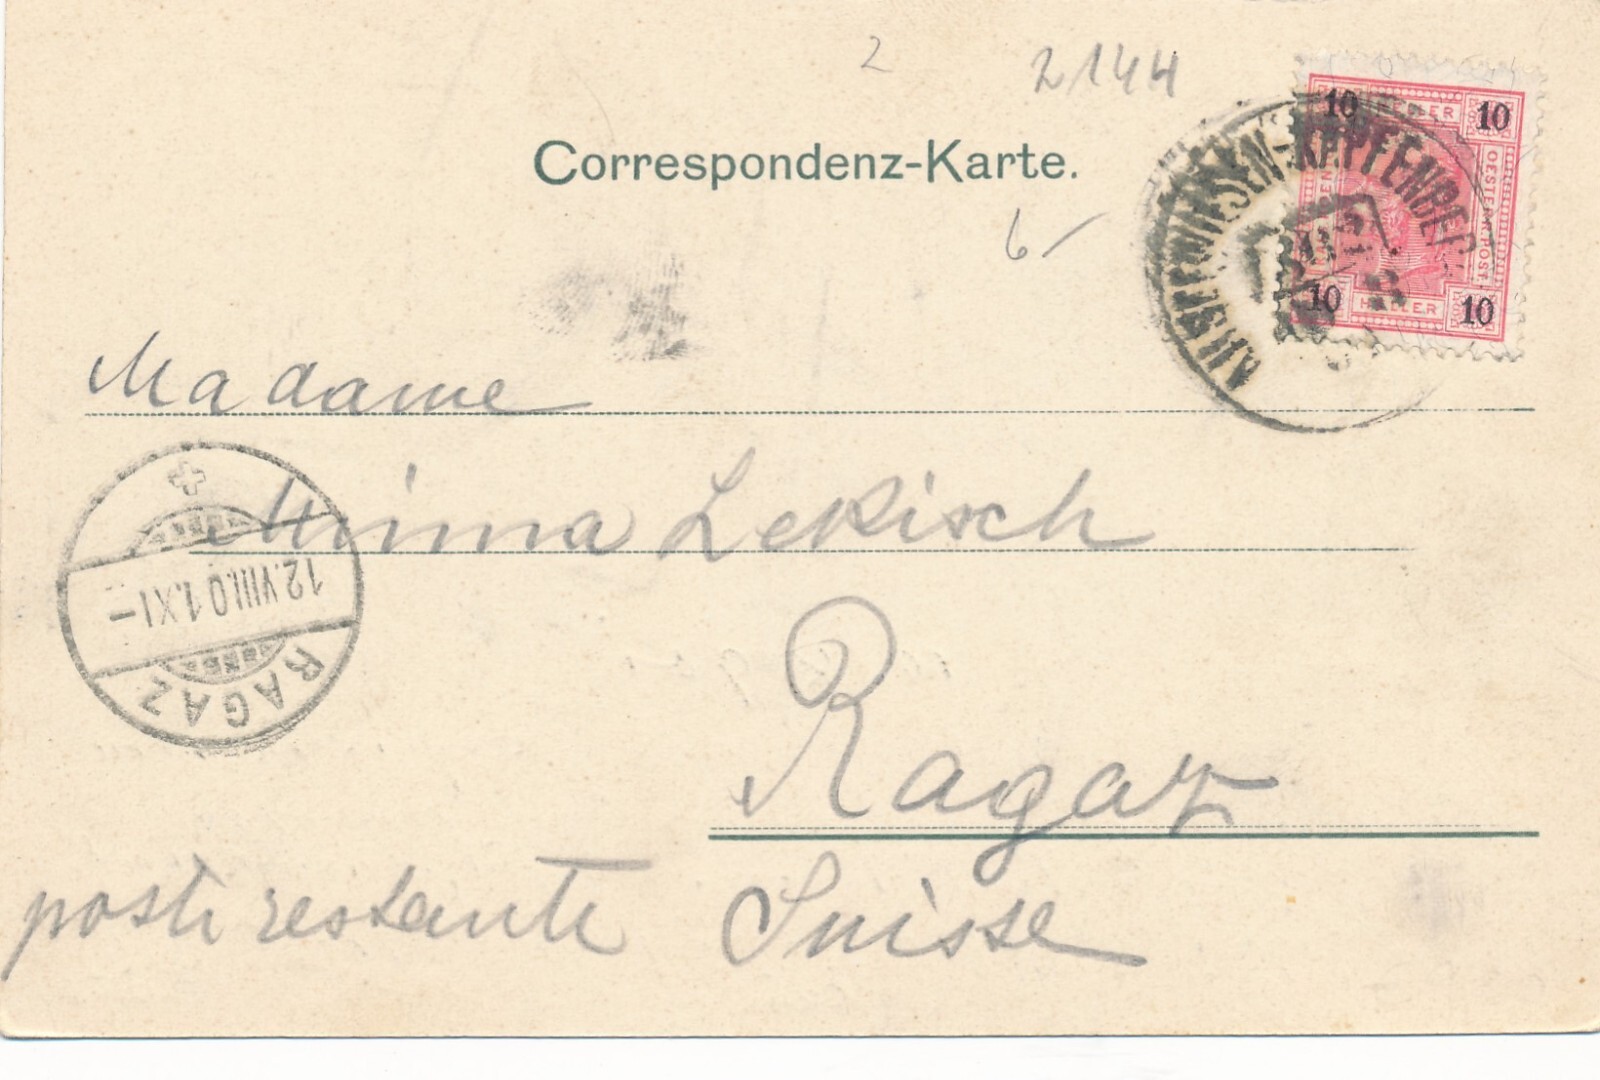 2
2144
Correspondenz-Karte.
6-
10 HELLER 10
OESTERR.POST
10 HELLER 10
AU-SEEWIESEN-KAPFENBERG
Madame
Minna Lekisch
Ragaz
poste restante Suisse
12.VIII.01.XI-
RAGAZ